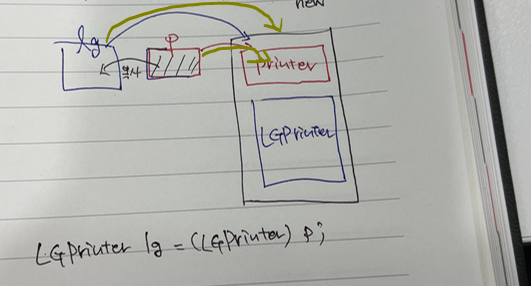 new
lg
p
printer
LGPrinter
LGPrinter lg = (LGPrinter) p;